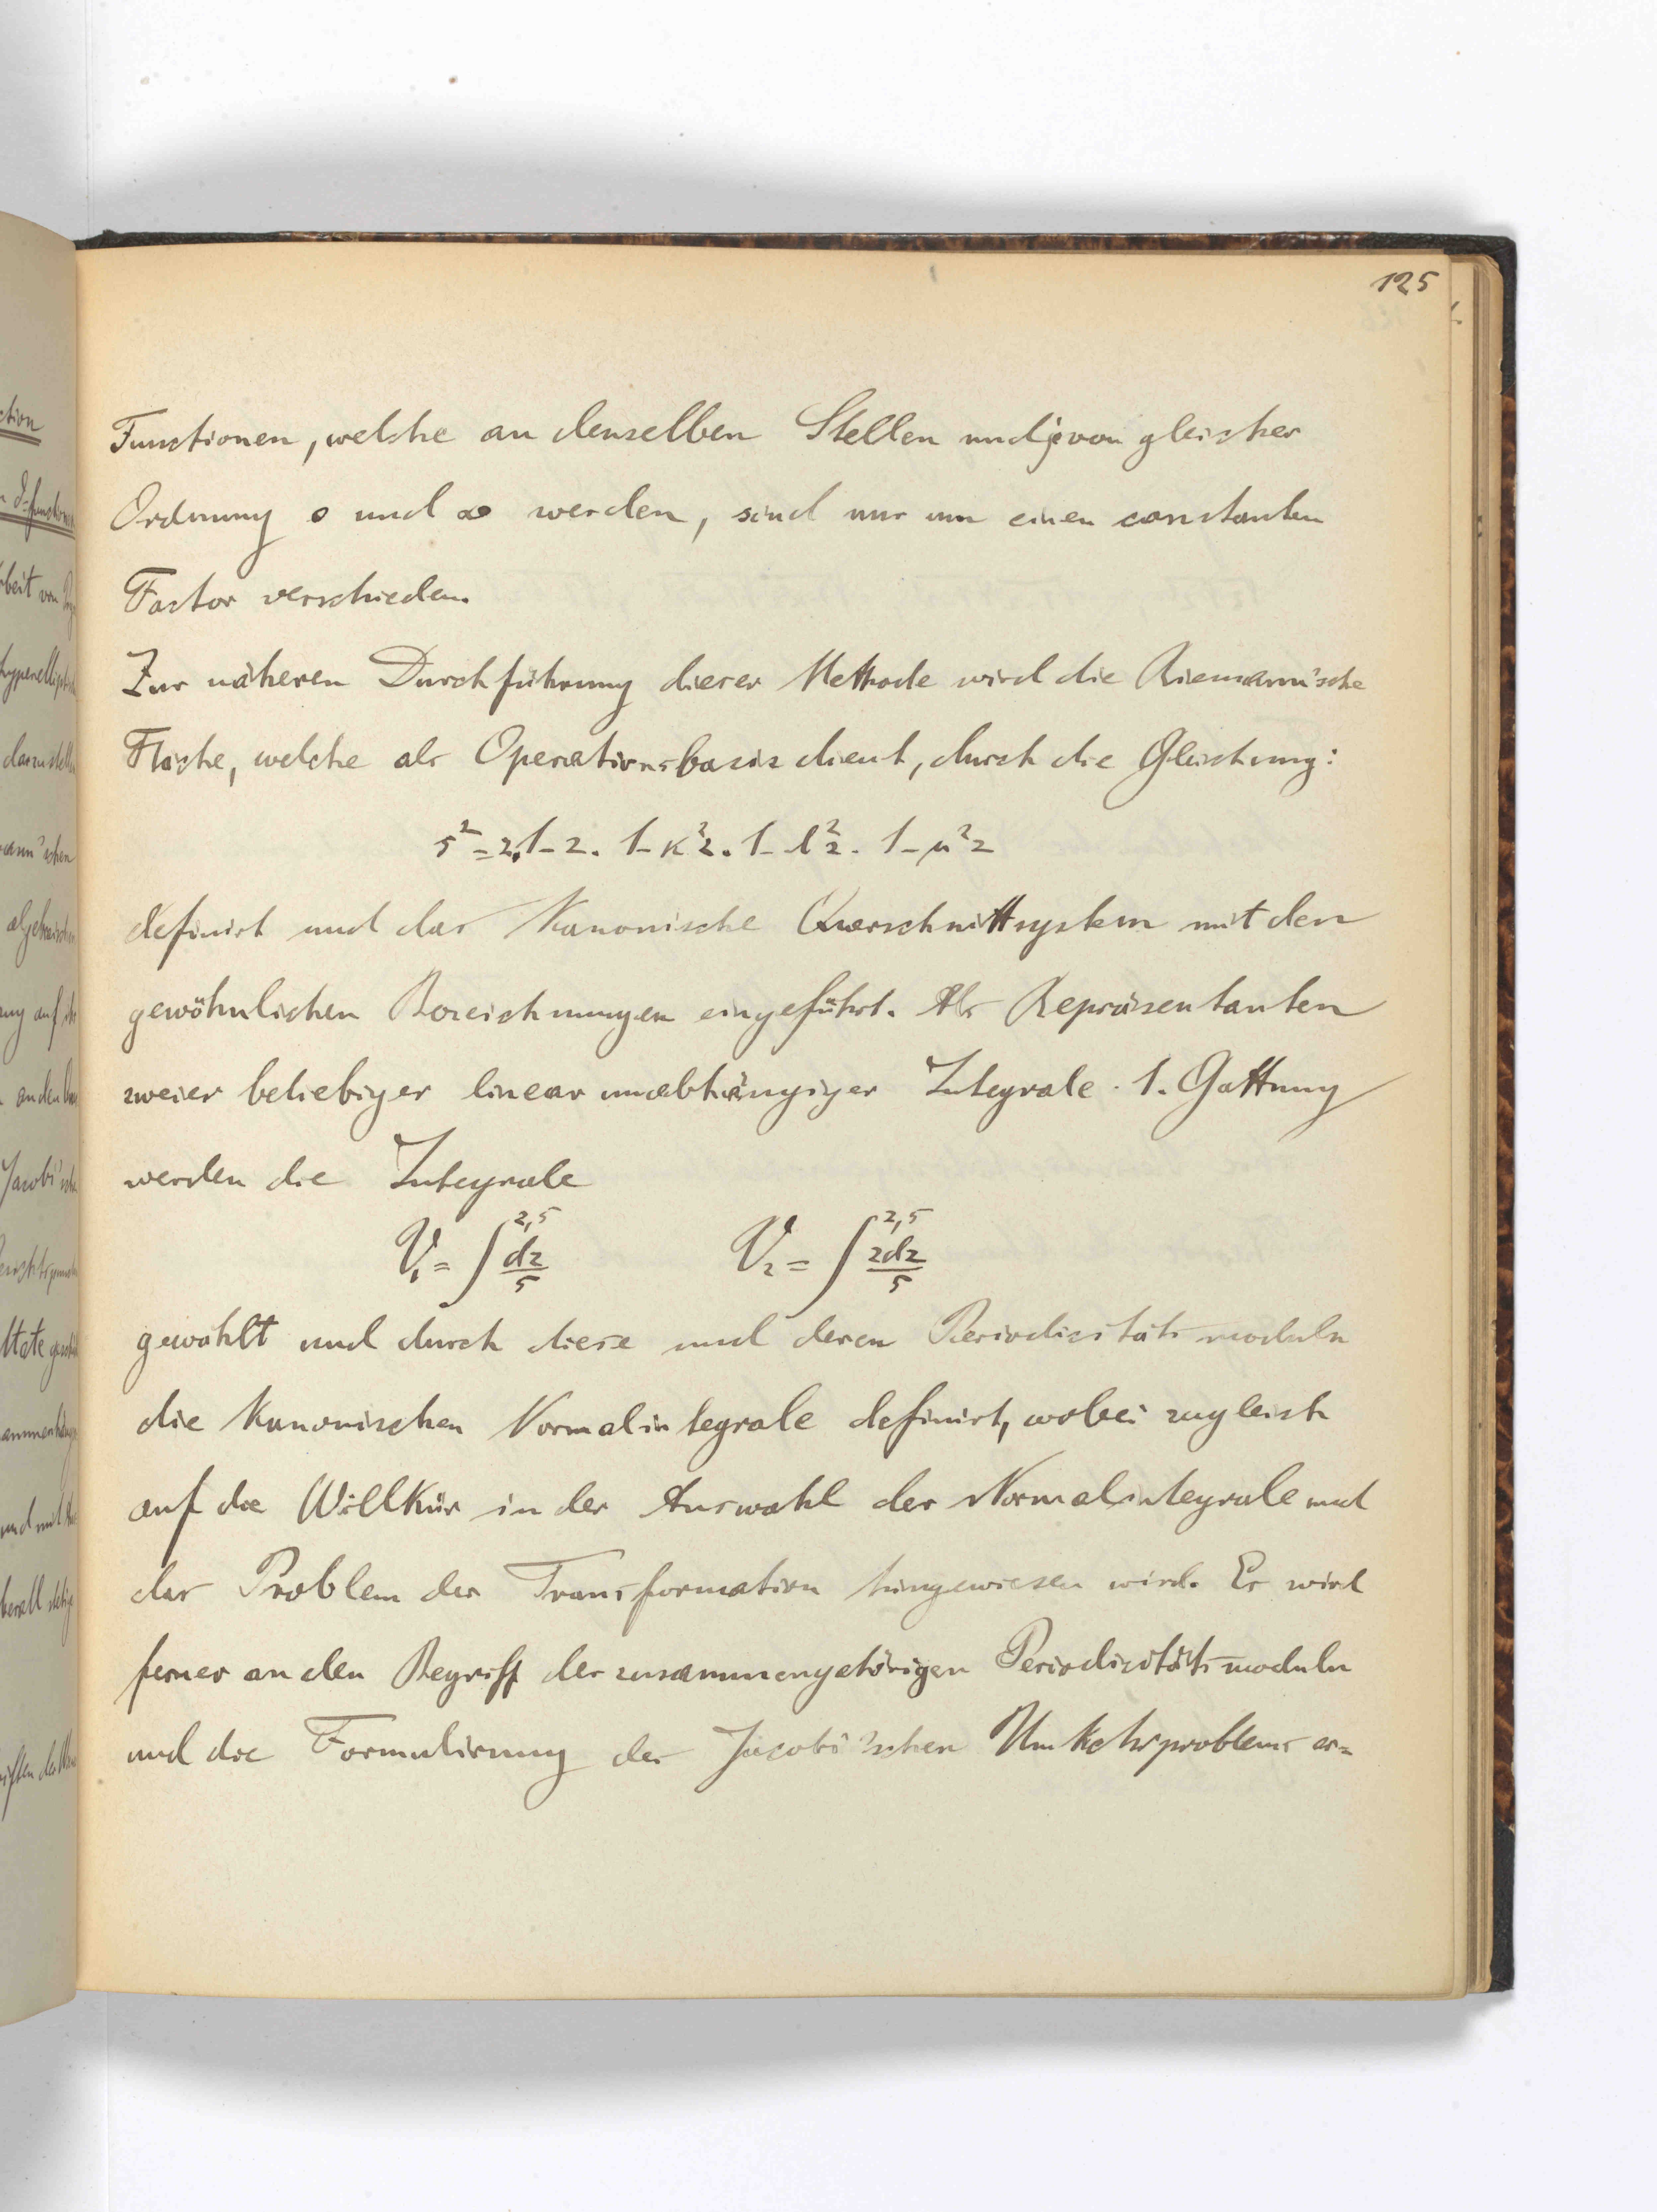 125
Functionen, welche an denselben Stellen und je von gleicher
Ordnung 0 und ∞ werden, sind nur um einen constanten
Factor verschieden.
Zur näheren Durchführung dieser Methode wird die Riemann'sche
Fläche, welche als Operationsbasis dient, durch die Gleichung:
s² = z . 1 - z . 1 - κ²z . 1 - λ²z . 1 - μ²z
definirt und das kanonische Querschnittsystem mit den
gewöhnlichen Bezeichnungen eingeführt. Als Repräsentanten
zweier beliebiger linear unabhängiger Integrale 1. Gattung
werden die Integrale
V₁ = ∫^{z,s} dz/s V₂ = ∫^{z,s} zdz/s
gewählt und durch diese und deren Periodicitätsmoduln
die kanonischen Normalintegrale definirt, wobei zugleich
auf die Willkür in der Auswahl der Normalintegrale und
das Problem der Transformation hingewiesen wird. Es wird
ferner an den Begriff der zusammengehörigen Periodicitätsmoduln
und die Formulirung des Jacobi'schen Umkehrproblems er=